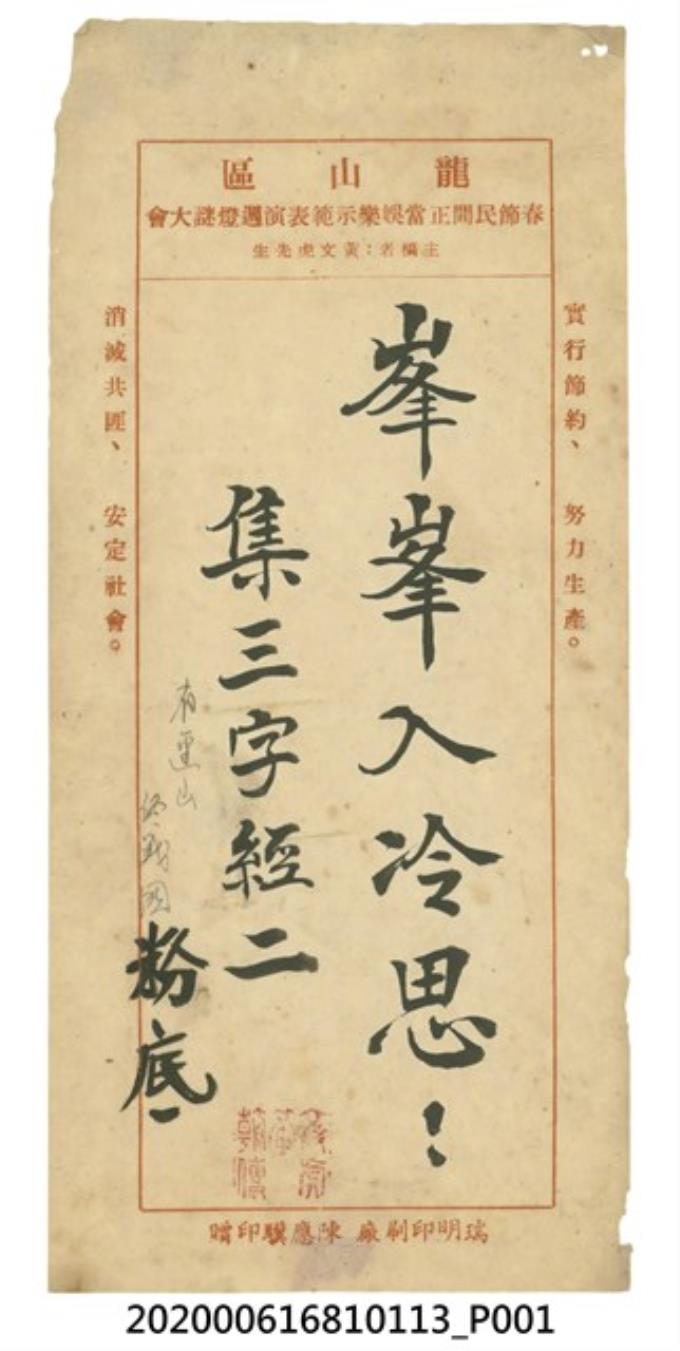 龍山區
春節民間正當娛樂示範表演週燈謎大會
主稿者：黃文虎先生
實行節約、 努力生產。
峯峯入冷思：
集三字經二
有連山
終戰國
粉底一
消滅共匪、 安定社會。
瑞明印刷廠 陳應驥印贈
202000616810113_P001